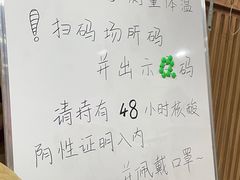 测量体温
! 扫码场所码
并出示绿码
请持有 48 小时核酸
阴性证明入内
并佩戴口罩~